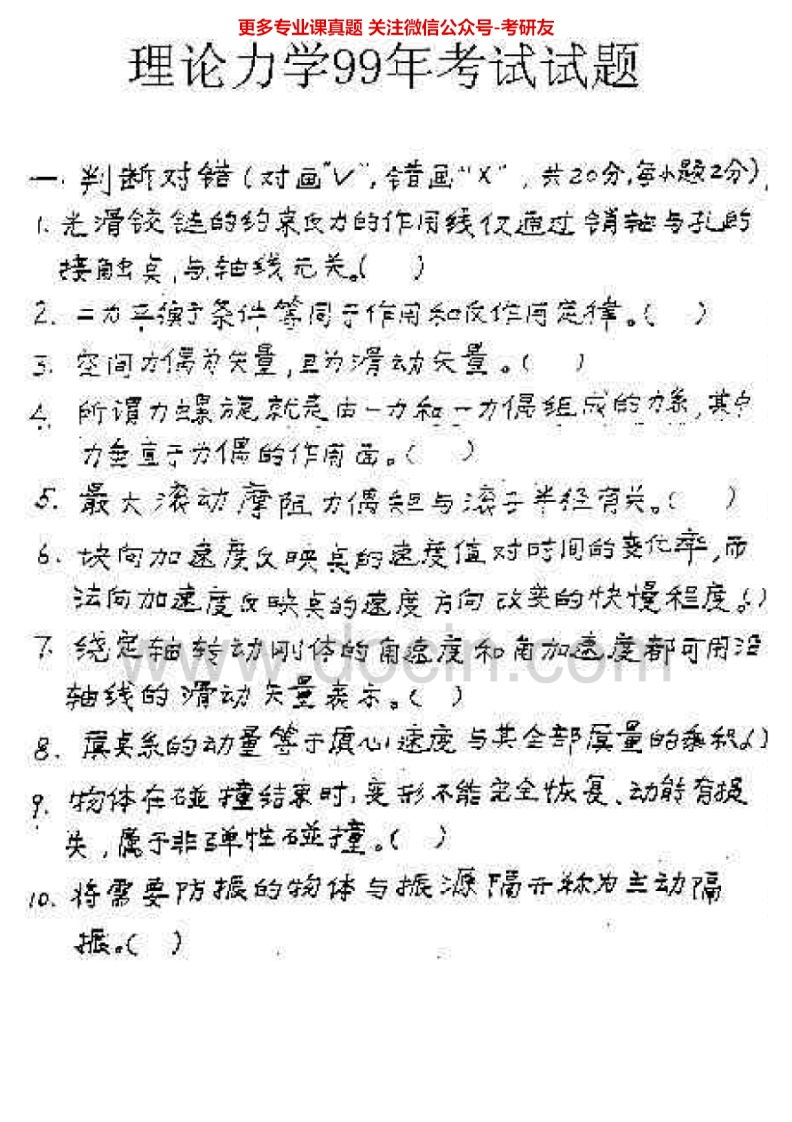 更多专业课真题 关注微信公众号-考研友
理论力学99年考试试题
一. 判断对错(对画"√",错画"X",共20分,每小题2分)
1. 光滑铰链的约束反力的作用线仅通过销轴与孔的
接触点,与轴线无关。( )
2. 二力平衡条件等同于作用和反作用定律。( )
3. 空间力偶为矢量,且为滑动矢量。( )
4. 所谓力螺旋就是由一力和一力偶组成的力系,其中
力垂直于力偶的作用面。( )
5. 最大滚动摩阻力偶矩与滚子半径有关。( )
6. 切向加速度反映点的速度值对时间的变化率,而
法向加速度反映点的速度方向改变的快慢程度。()
7. 绕定轴转动刚体的角速度和角加速度都可用沿
轴线的滑动矢量表示。( )
8. 质点系的动量等于质心速度与其全部质量的乘积。()
9. 物体在碰撞结束时,变形不能完全恢复、动能有损
失,属于非弹性碰撞。( )
10. 将需要防振的物体与振源隔开称为主动隔
振。( )
www.docin.com